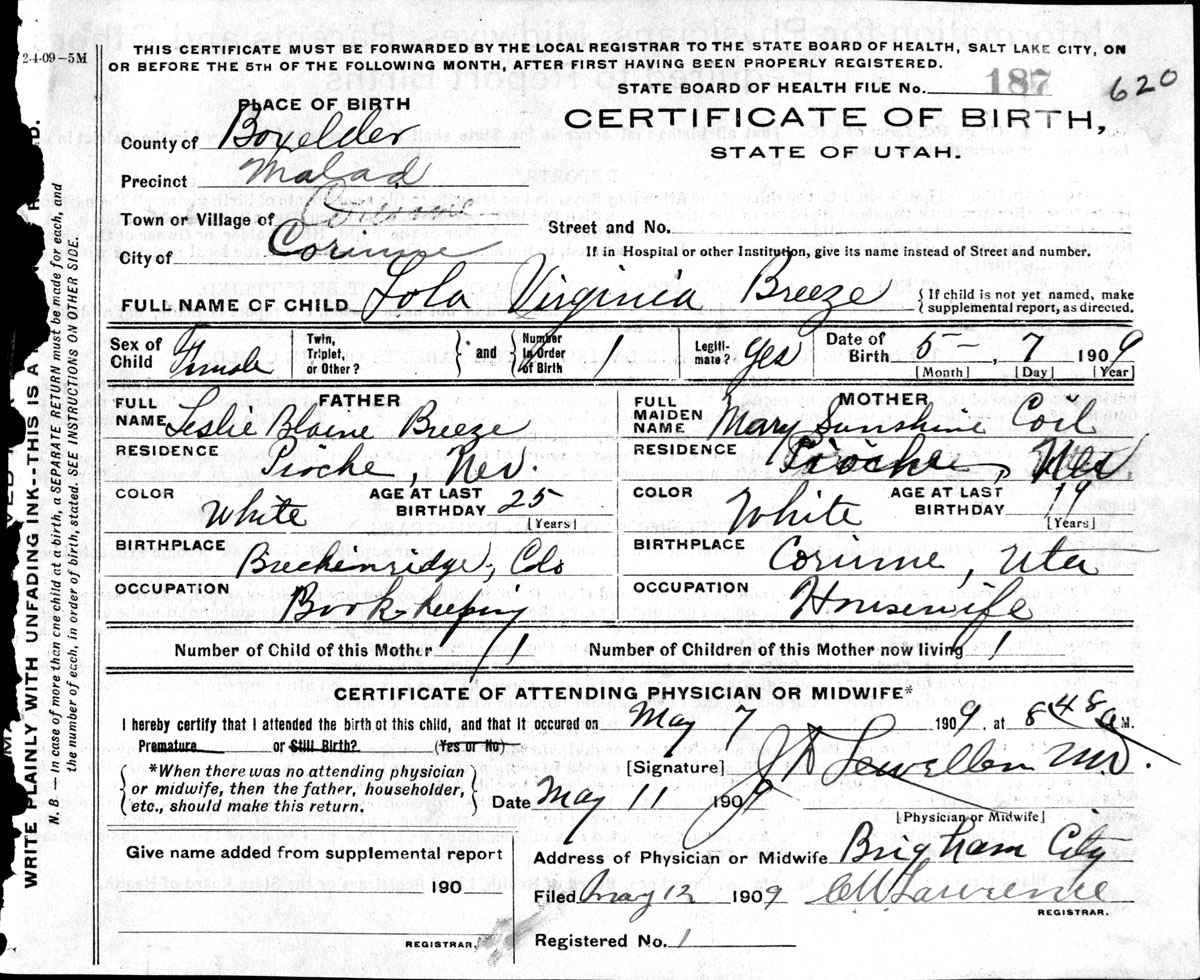 2-4-09-5M
THIS CERTIFICATE MUST BE FORWARDED BY THE LOCAL REGISTRAR TO THE STATE BOARD OF HEALTH, SALT LAKE CITY, ON
OR BEFORE THE 5TH OF THE FOLLOWING MONTH, AFTER FIRST HAVING BEEN PROPERLY REGISTERED.
STATE BOARD OF HEALTH FILE No. 187 620
PLACE OF BIRTH
CERTIFICATE OF BIRTH,
STATE OF UTAH.
County of Boxelder
Precinct Malad
Town or Village of Corinne
Street and No.
City of Corinne
If in Hospital or other Institution, give its name instead of Street and number.
FULL NAME OF CHILD Lola Virginia Breeze { If child is not yet named, make
supplemental report, as directed.
Sex of Child Female
Twin, Triplet, or Other? } and { Number in Order of Birth 1
Legitimate? Yes
Date of Birth 5 - , 7 1909
[Month] [Day] [Year]
FATHER
FULL NAME Leslie Blaine Breeze
RESIDENCE Pioche, Nev.
COLOR White AGE AT LAST BIRTHDAY 25
[Years]
BIRTHPLACE Breckenridge, Colo
OCCUPATION Book-keeping
MOTHER
FULL MAIDEN NAME Mary Sunshine Coil
RESIDENCE Pioche, Nev.
COLOR White AGE AT LAST BIRTHDAY 19
[Years]
BIRTHPLACE Corinne, Uta
OCCUPATION Housewife
Number of Child of this Mother 1 Number of Children of this Mother now living 1
CERTIFICATE OF ATTENDING PHYSICIAN OR MIDWIFE*
I hereby certify that I attended the birth of this child, and that it occured on May 7 1909, at 848 a M.
Premature or Still Birth? (Yes or No)
*When there was no attending physician
or midwife, then the father, householder,
etc., should make this return.
[Signature] Lewellen M.D.
Date May 11 1909
[Physician or Midwife]
Give name added from supplemental report
190
REGISTRAR.
Address of Physician or Midwife Brigham City
Filed May 12 1909 C W Lawrence
REGISTRAR.
Registered No. 1
WRITE PLAINLY WITH UNFADING INK--THIS IS A
N. B. — In case of more than one child at a birth, a SEPARATE RETURN must be made for each, and
the number of each, in order of birth, stated. SEE INSTRUCTIONS ON OTHER SIDE.